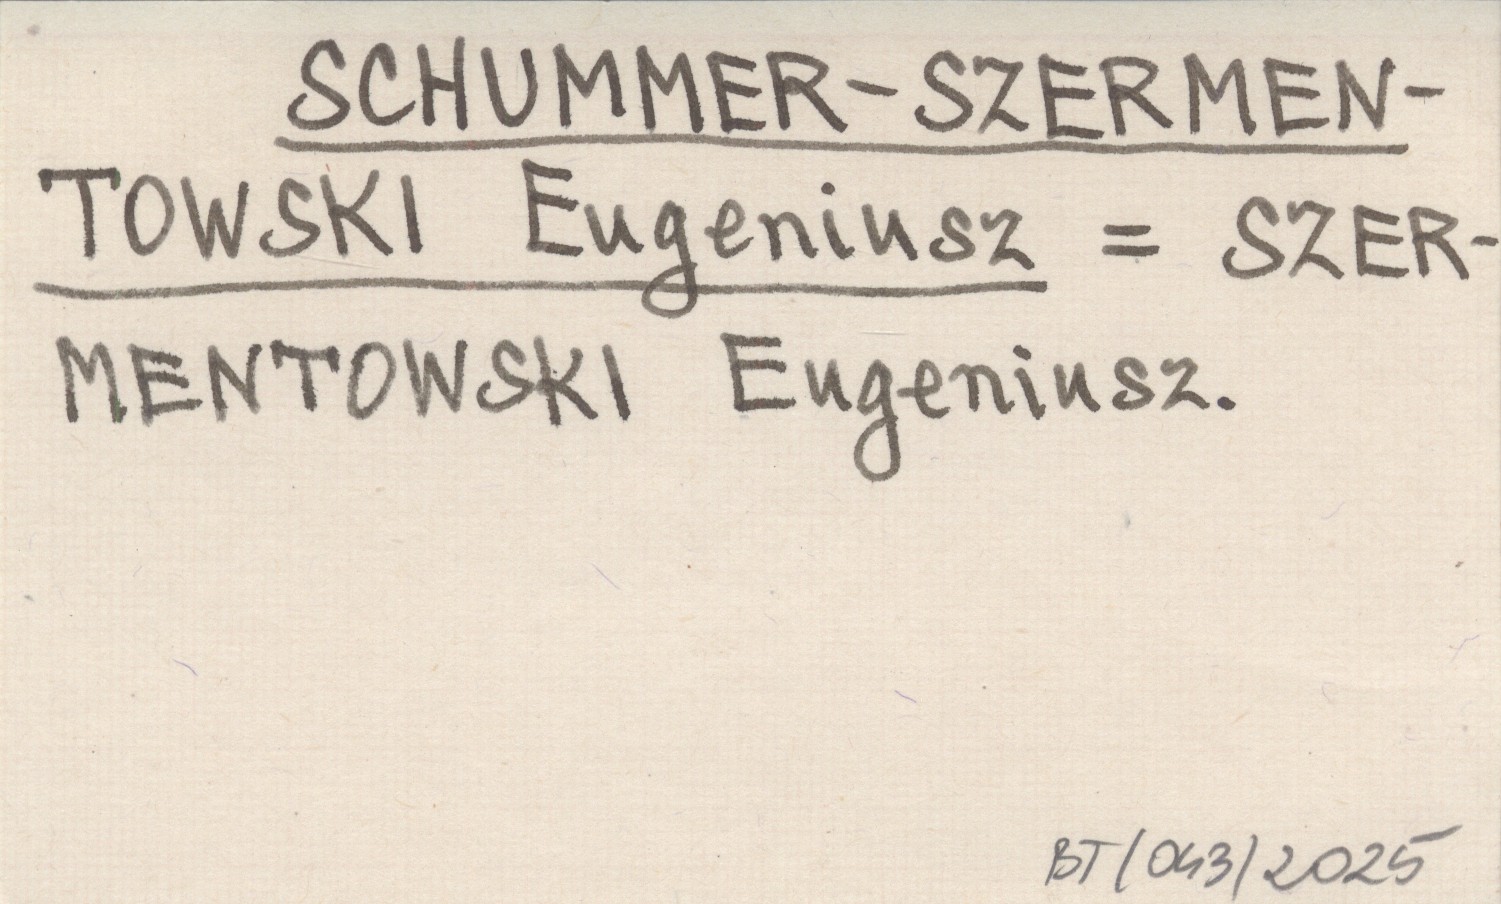 SCHUMMER-SZERMEN-
TOWSKI Eugeniusz = SZER-
MENTOWSKI Eugeniusz.
BT/043/2025